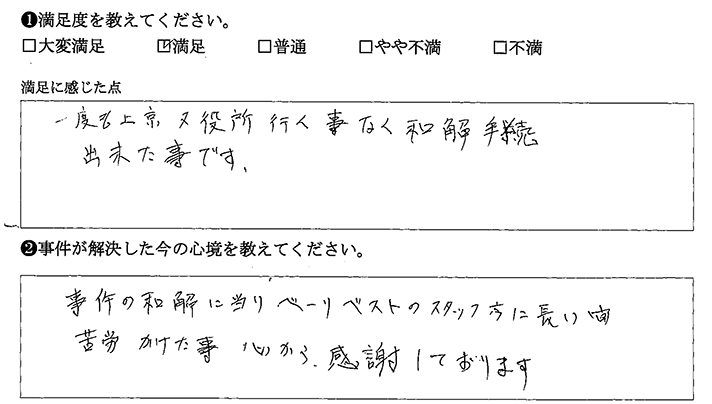 ❶満足度を教えてください。
□大変満足 ☑満足 □普通 □やや不満 □不満
満足に感じた点
一度も上京又役所行く事なく和解手続
出来た事です。
❷事件が解決した今の心境を教えてください。
事件の和解に当りベーリベストのスタッフ方に長い間
苦労かけた事 心から、感謝しております